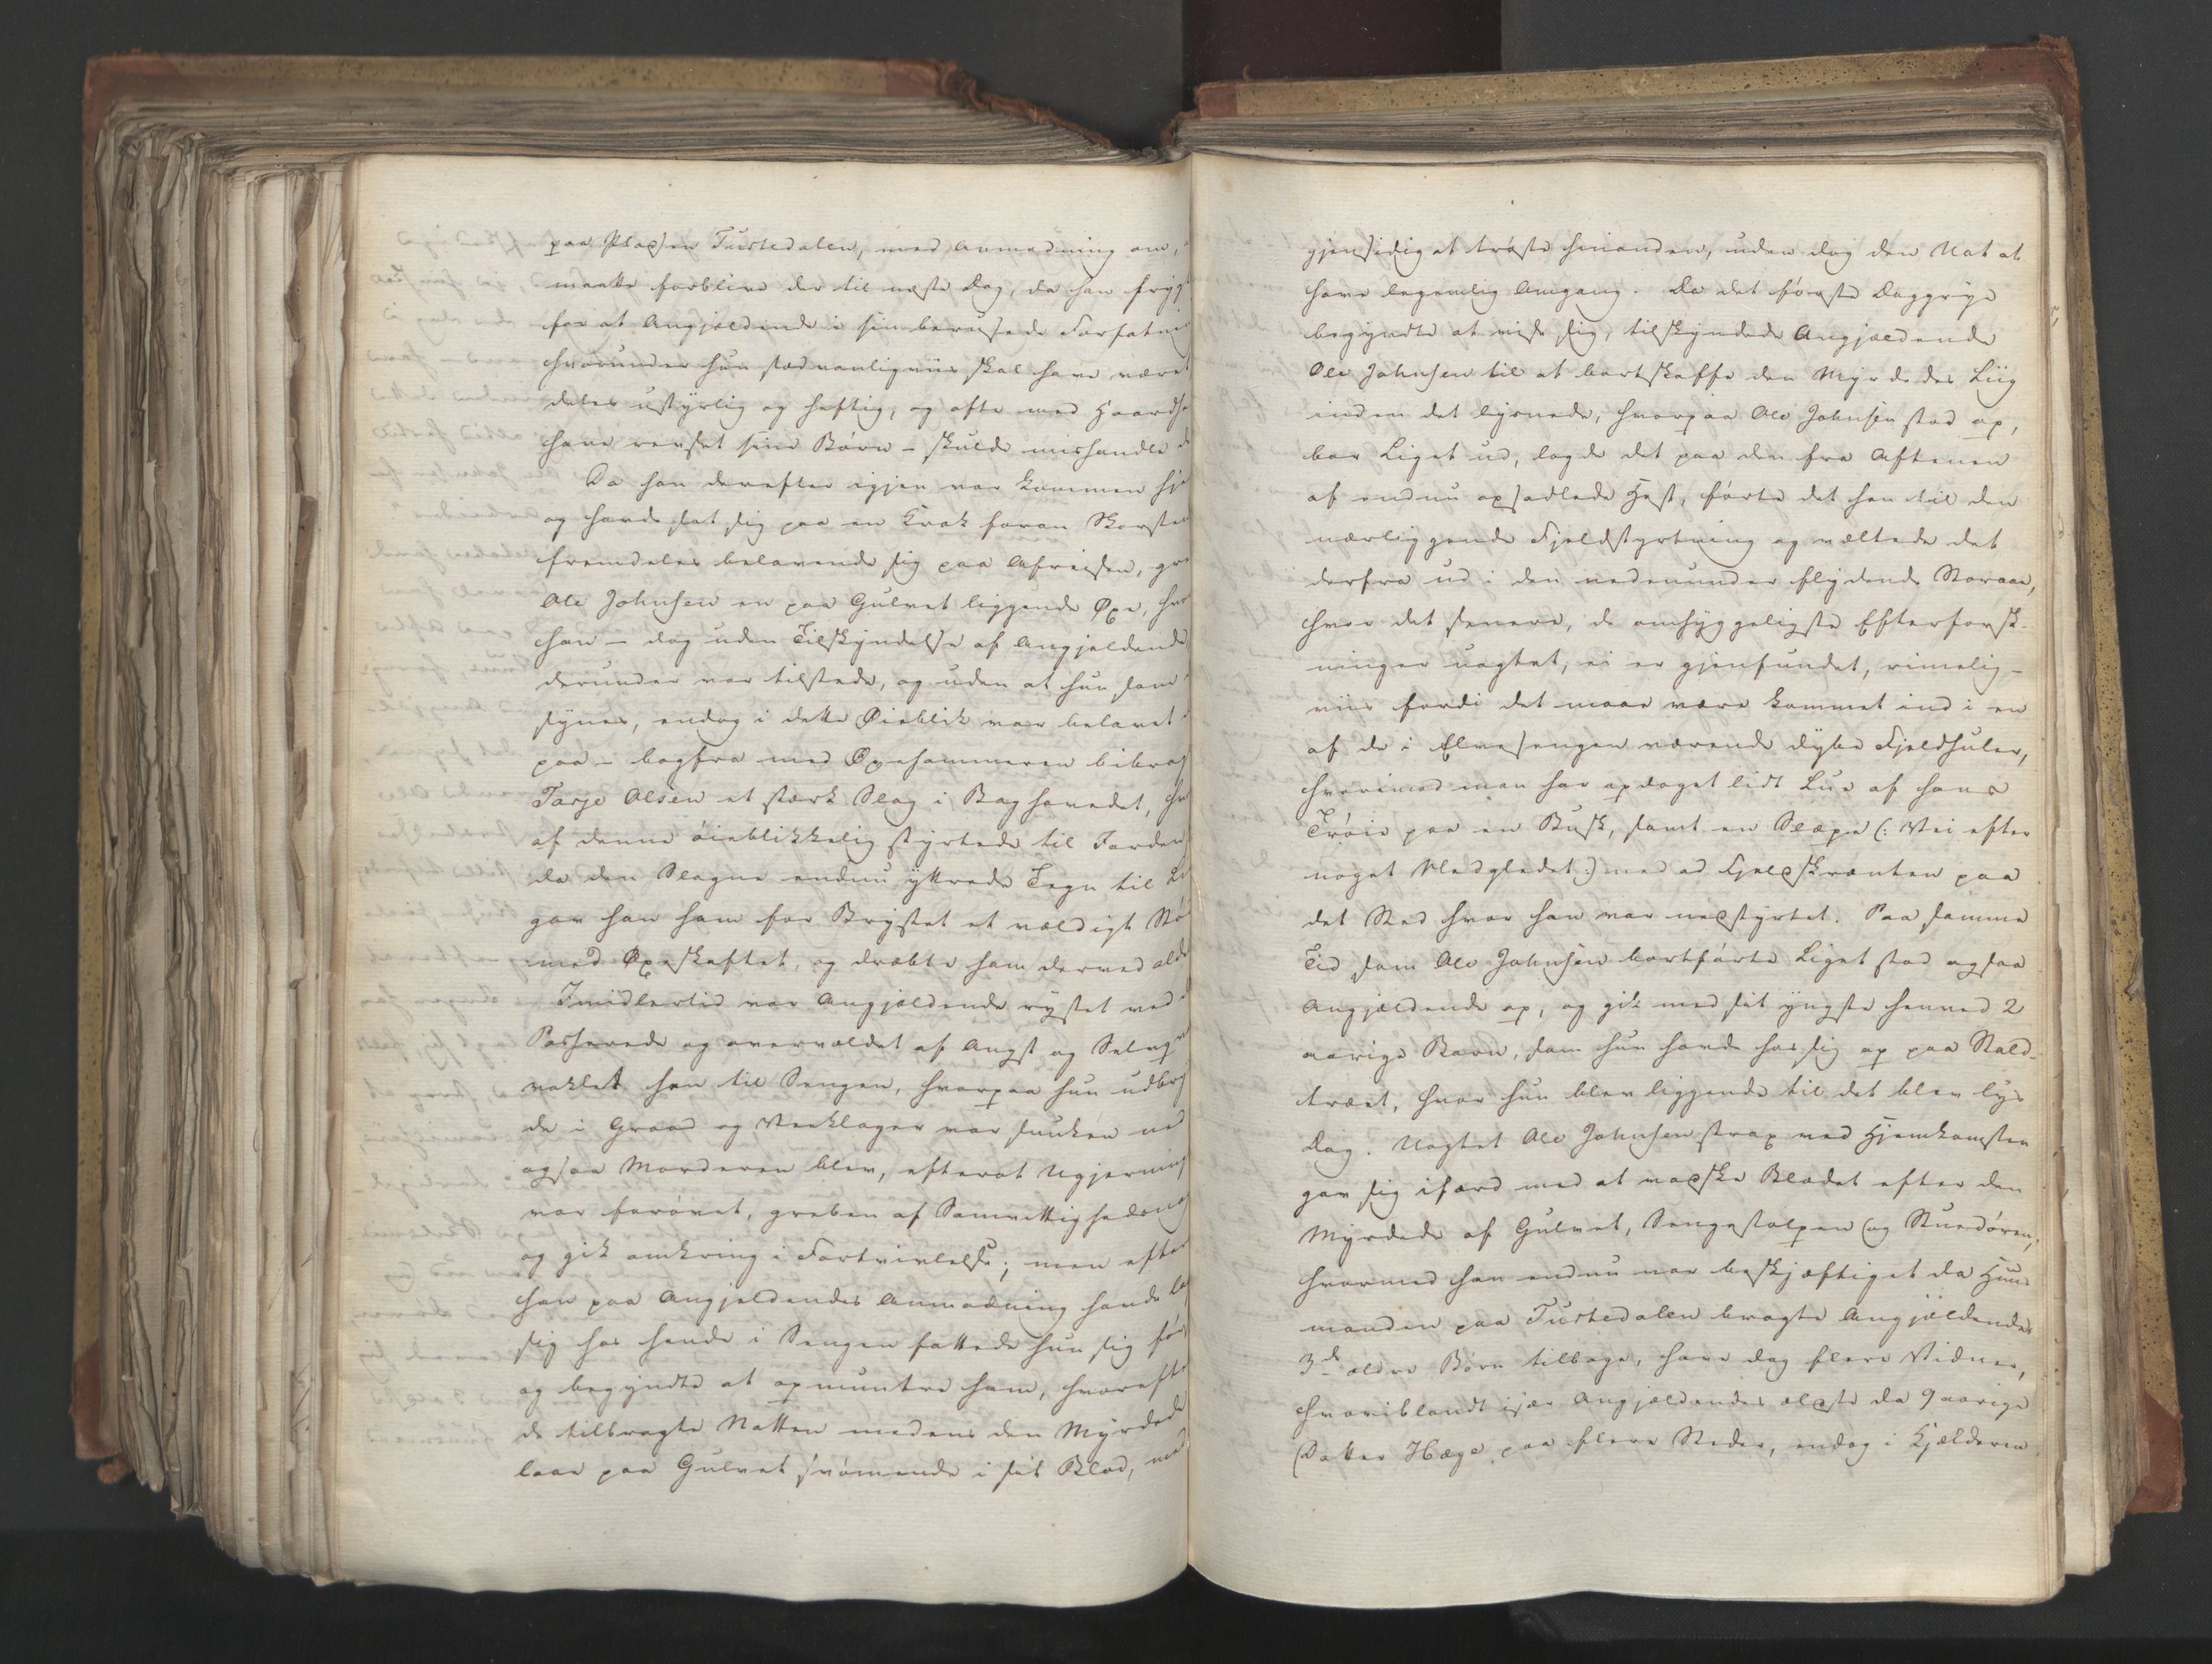 paa Pladsen Tustedalen, med Anmodning om,
maatte forblive der til næste Dag, da han frygt
for at Angjældende i sin berusede Forfatni
hvorunder hun sædvanligviis skal have været
deles ustyrlig og heftig, og ofte med Haardh
have revset sine Børn – skulde mishandle d
Da han derefter igjen var kommen hje
og havde sat sig paa en Krak foran Skorste
fremdeles belavende sig paa Afreisen, gre
Ole Johnsen en paa Gulvet liggende Øxe, hvo
han – dog uden Tilskyndelse af Angjældende
derunder var tilstede, og uden at hun som
synes, endog i dette Øieblik var belavet
paa – bagfra med Øxehammeren bibrag
Tarje Olsen et stærk Slag i Baghovedet, hv
af denne øieblikkelig styrtede til Jorden
da den Slagne endnu yttrede Tegn til Li
gav han ham for Brystet et vældigt Stø
med Øxeskaftet, og dræbte ham derved alde
Imidlertid var Angjældende rystet ved
Passerede og overvældet af Angst og
vaklet hen til Sengen, hvorpaa hun udbry
de i Graad og Veeklager var sunken ned
ogsaa Morderen blev, efterat Ugjerning
var forøvet, greben af Samvittighedsnag
og gik omkring i Fortvivlelse; men efter
han paa Angjældendes Anmodning havde lag
sig hos hende i Sengen fattede hun sig før
og begyndte at opmuntre ham, hvorefte
de tilbragte Natten medens den Myrdede
laae paa Gulvet svømmende i sit Blod, med
gjensidig at trøste hinanden, uden dog den Nat at
have legemlig Omgang. Da det første Daggrye
begyndte at vise sig, tilskyndede Angjældende
Ole Johnsen til at bortskaffe den Myrdedes Liig
inden det lysnede, hvorpaa Ole Johnsen stod op,
bar Liget ud, lagde det paa den fra Aftenen
af endnu opsadlede Hest, førte det hen til den
nærliggende Fjeldstyrtning og væltede det
derfra ud i den nedenunder flydende Storaae,
hvor det senere, de omhyggeligste Efterforsk-
ninger uagtet, ei er gjenfundet, rimelig-
viis fordi det maae være kommet ind i en
af de i Elvesengen værende dybe Fjeldhuler,
hvorimod man har opdaget lidt Lue af hans
Trøie paa en Busk, samt en Slæpe (: Vei efter
noget Nedgledet :) ned ad Fjeldskrænten paa
det Sted hvor han var nedstyrtet. Paa samme
Tid som Ole Johnsen bortførte Liget stod ogsaa
Angjældende op, og gik med sit yngste henved 2
aarige Barn, som hun havde hos sig op paa Stald-
træet, hvor hun blev liggende til det blev lys
Dag. Uagtet Ole Johnsen strax ved Hjemkomsten
gav sig ifærd med at vadske Blodet efter den
Myrdede af Gulvet, Sengestolpen og Stuedøren,
hvormed han endnu var beskjæftiget da Huus
manden paa Tustedalen bragte Angjældendes
3de ældre Børn tilbage, have dog flere Vidner,
hvoriblandt især Angjældendes ældste da 9 aarige
Datter Hæge paa flere Steder, endog i Kjælderen